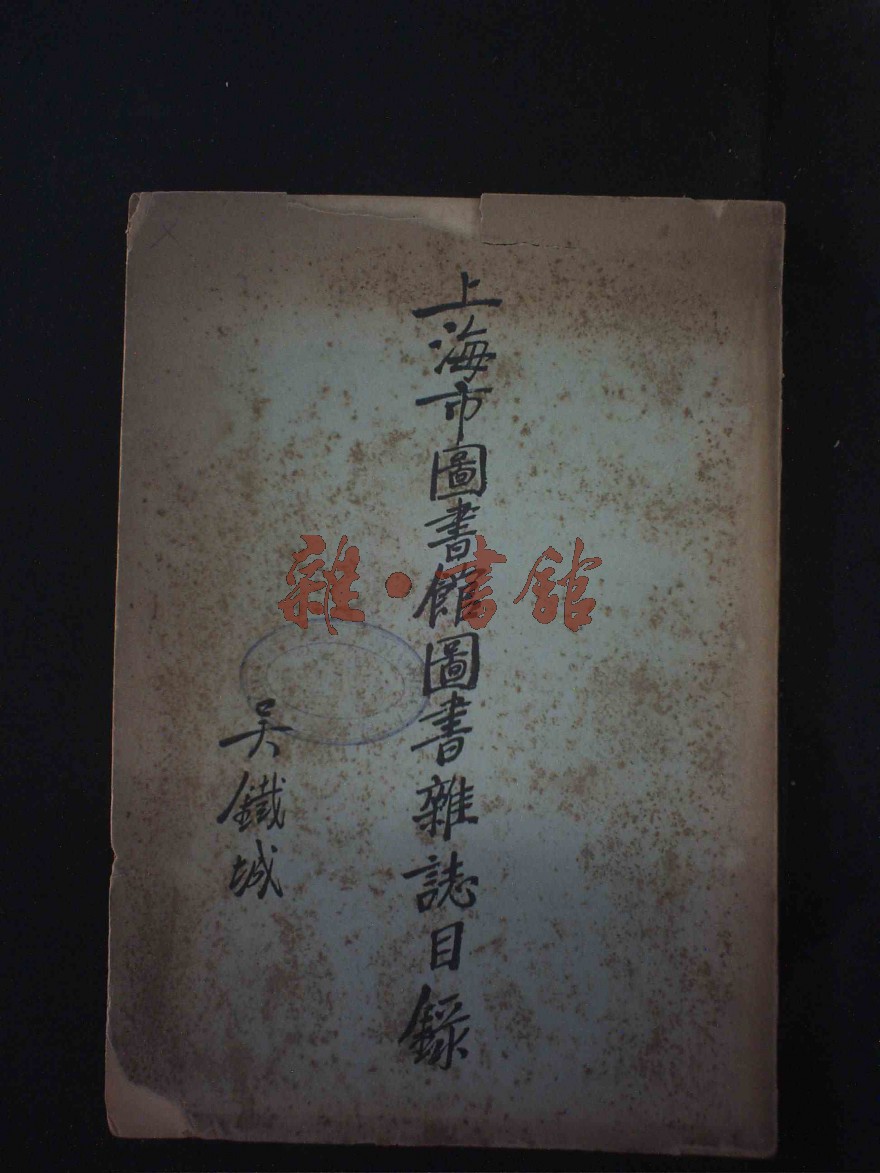 上海市圖書館圖書雜誌目錄
吳鐵城
雜·書館